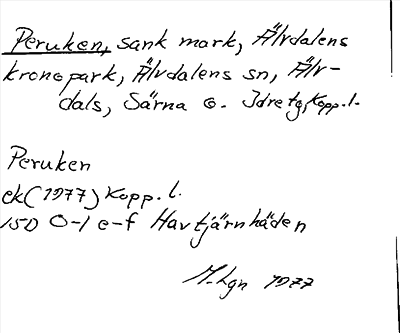 Peruken, sank mark, Älvdalens
kronopark, Älvdalens sn, Älv-
dals, Särna o. Idre tg, Kopp. l.
Peruken
ek (1977) Kopp. l.
15D 0-1 e-f Havtjärnhäden
M. Lgn 1977